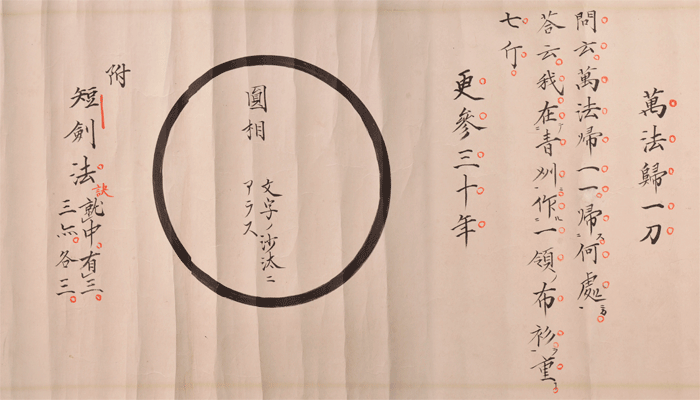 萬法歸一刀
問云萬法帰一一帰何處
答云我在青州作一領布衫重
七斤
更參三十年
圓相
文字ノ沙汰ニ
アラス
附
短劍法
訣
就中有三
三 各三